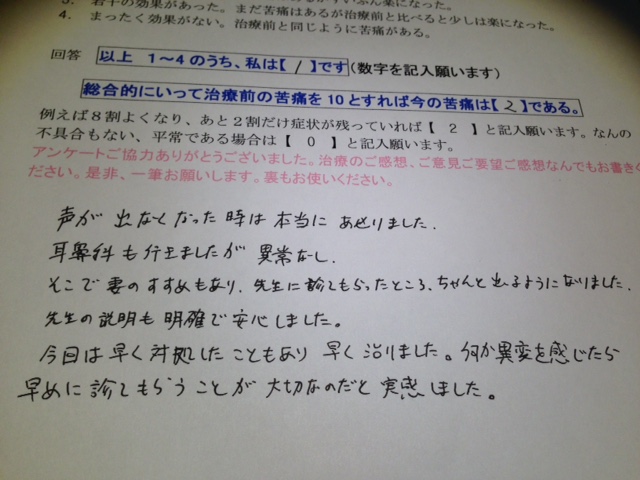 3. 若干の効果があった。まだ苦痛はあるが治療前と比べると少しは楽になった。
4. まったく効果がない。治療前と同じように苦痛がある。
回答 以上 1~4のうち、私は【 1 】です(数字を記入願います)
総合的にいって治療前の苦痛を10とすれば今の苦痛は【 2 】である。
例えば8割よくなり、あと2割だけ症状が残っていれば【 2 】と記入願います。なんの
不具合もない、平常である場合は【 0 】と記入願います。
アンケートご協力ありがとうございました。治療のご感想、ご意見ご要望ご感想なんでもお書きく
ださい。是非、一筆お願いします。裏もお使いください。
声が出なくなった時は本当にあせりました.
耳鼻科も行きましたが異常なし.
そこで妻のすすめもあり、先生に診てもらったところ、ちゃんと出るようになりました.
先生の説明も明確で安心しました。
今回は早く対処したこともあり早く治りました。何か異変を感じたら
早めに診てもらうことが大切なのだと実感しました。